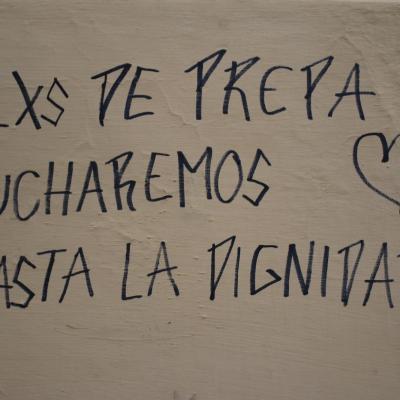 LXS DE PREPA
LUCHAREMOS
HASTA LA DIGNIDAD